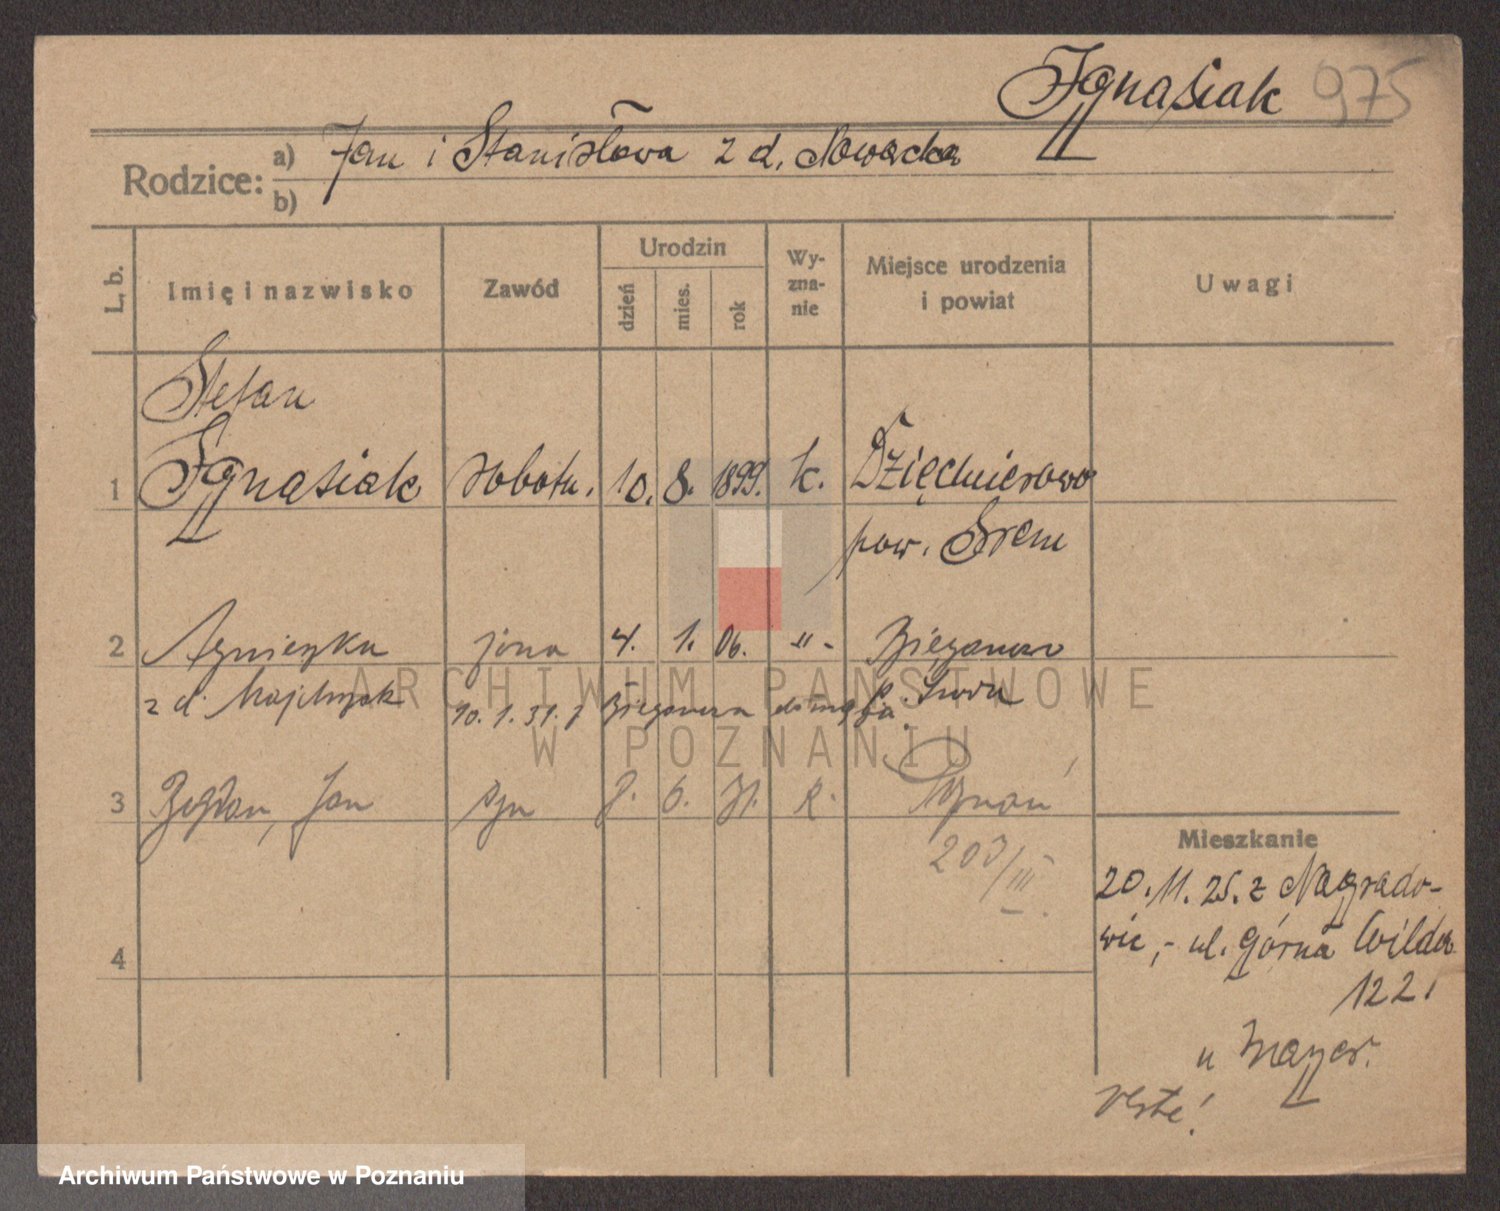 Ignasiak 975
Rodzice: a) Jan i Stanisława z d. Nowacka
b)
L. b. Imię i nazwisko Zawód Urodzin dzień mies. rok Wyzna-nie Miejsce urodzenia i powiat Uwagi
Stefan
1 Ignasiak robotn. 10. 8. 1899. k. Dzięcmierowo
pow. Śrem
2 Agnieszka żona 4. 1. 06. -"- Bieganowo
z d. 10. 1. 31. z Bieganowa do męża p. Środa
3 Bogdan, Jan syn 7. 6. 31. k. Poznań
203/III
4
Mieszkanie
20. 11. 25. z Nagrado-
wic, - ul. Górna Wilda
122,
u Mayer.
verte!
ARCHIWUM PAŃSTWOWE
W POZNANIU
Archiwum Państwowe w Poznaniu